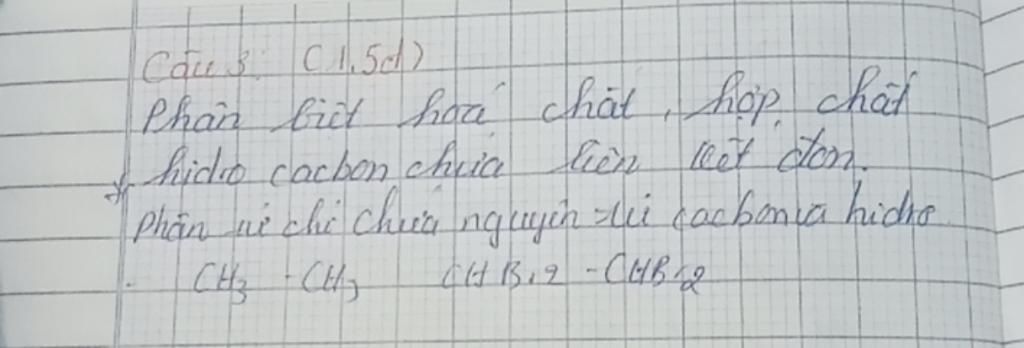 Câu 3: (1,5đ)
Phân biệt hoá chất, hợp chất
* hidro cacbon chứa liên kết đơn.
Phân tử chỉ chứa nguyên tử cacbon và hidro
CH3 - CH3 CHBr2 - CHBr2